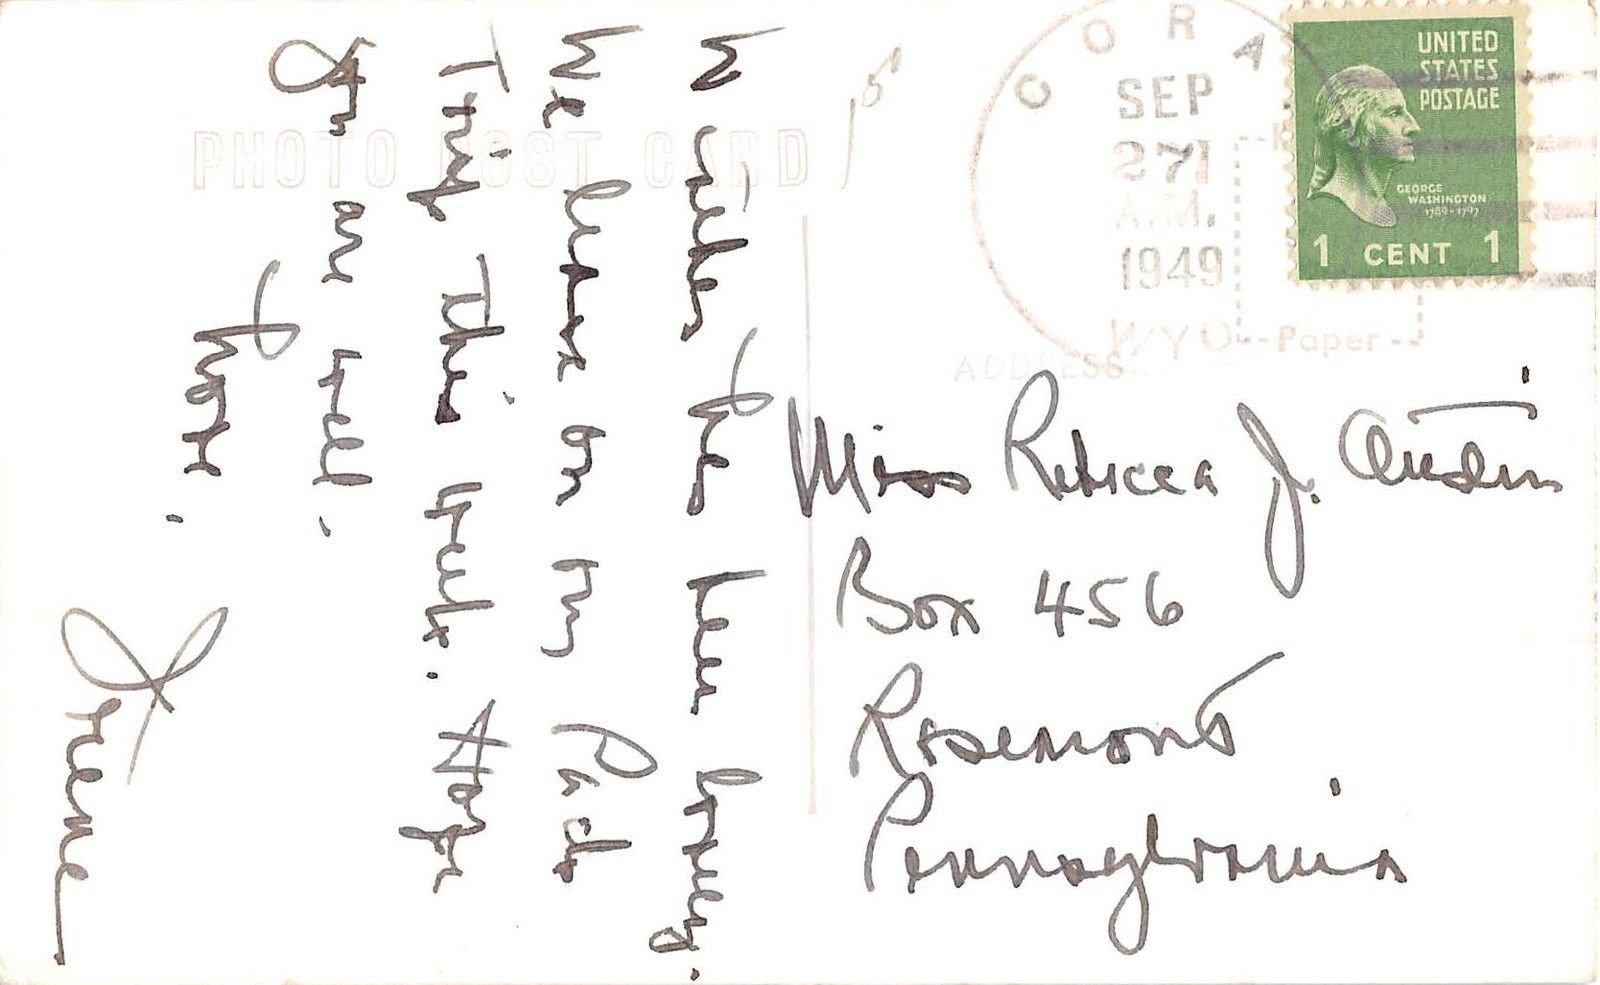 PHOTO POST CARD
Weather has been lovely.
We leave on my Pack
Trip this week. Hope
you are well.
Love.
Irene
CORA
SEP
27
A.M.
1949
WYO
UNITED
STATES
POSTAGE
GEORGE
WASHINGTON
1789-1797
1 CENT 1
Paper
ADDRESS
Miss Rebecca J. Austin
Box 456
Rosemont
Pennsylvania